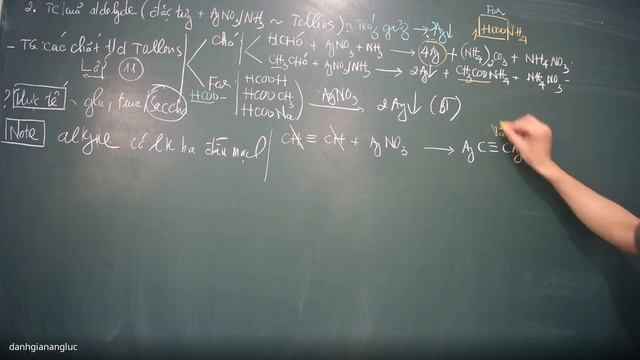 2. Tc của aldehyde (đặc trưng + AgNO₃/NH₃ ~ Tollens) ~ Tráng gương → Ag↓
For
HCOONH₄
- Tc các chất t/d Tollens
Chó
HCHO + AgNO₃ + NH₃ → 4Ag + (NH₄)₂CO₃ + NH₄NO₃
CH₃CHO + AgNO₃/NH₃ → 2Ag↓ + CH₃COONH₄ + NH₄NO₃
11
For
HCOO-
HCOOH
HCOOCH₃
HCOONa
AgNO₃ → 2Ag↓ (BT)
? Thực tế ~ glu, fruc Saccha
Note alkyne có lk ba đầu mạch
CH ≡ CH + AgNO₃ → AgC ≡ CAg
danhgianangluc